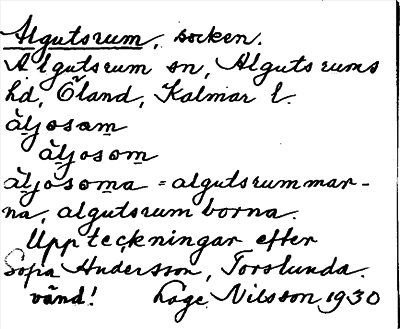 Algutsrum, socken.
Algutsrum sn, Algutsrums
hd, Öland, Kalmar l.
äljosam
äljosom
äljosoma = algutsrummar-
na, algutsrumborna.
Uppteckningar efter
Sofia Andersson, Torslunda.
vänd! Låge Nilsson 1930